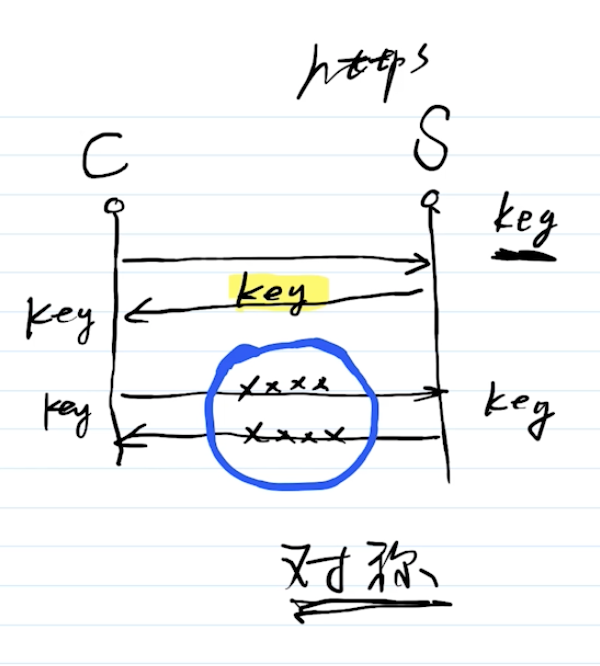 https
C S
key
key
key
xxxx
key key
xxxx
对称